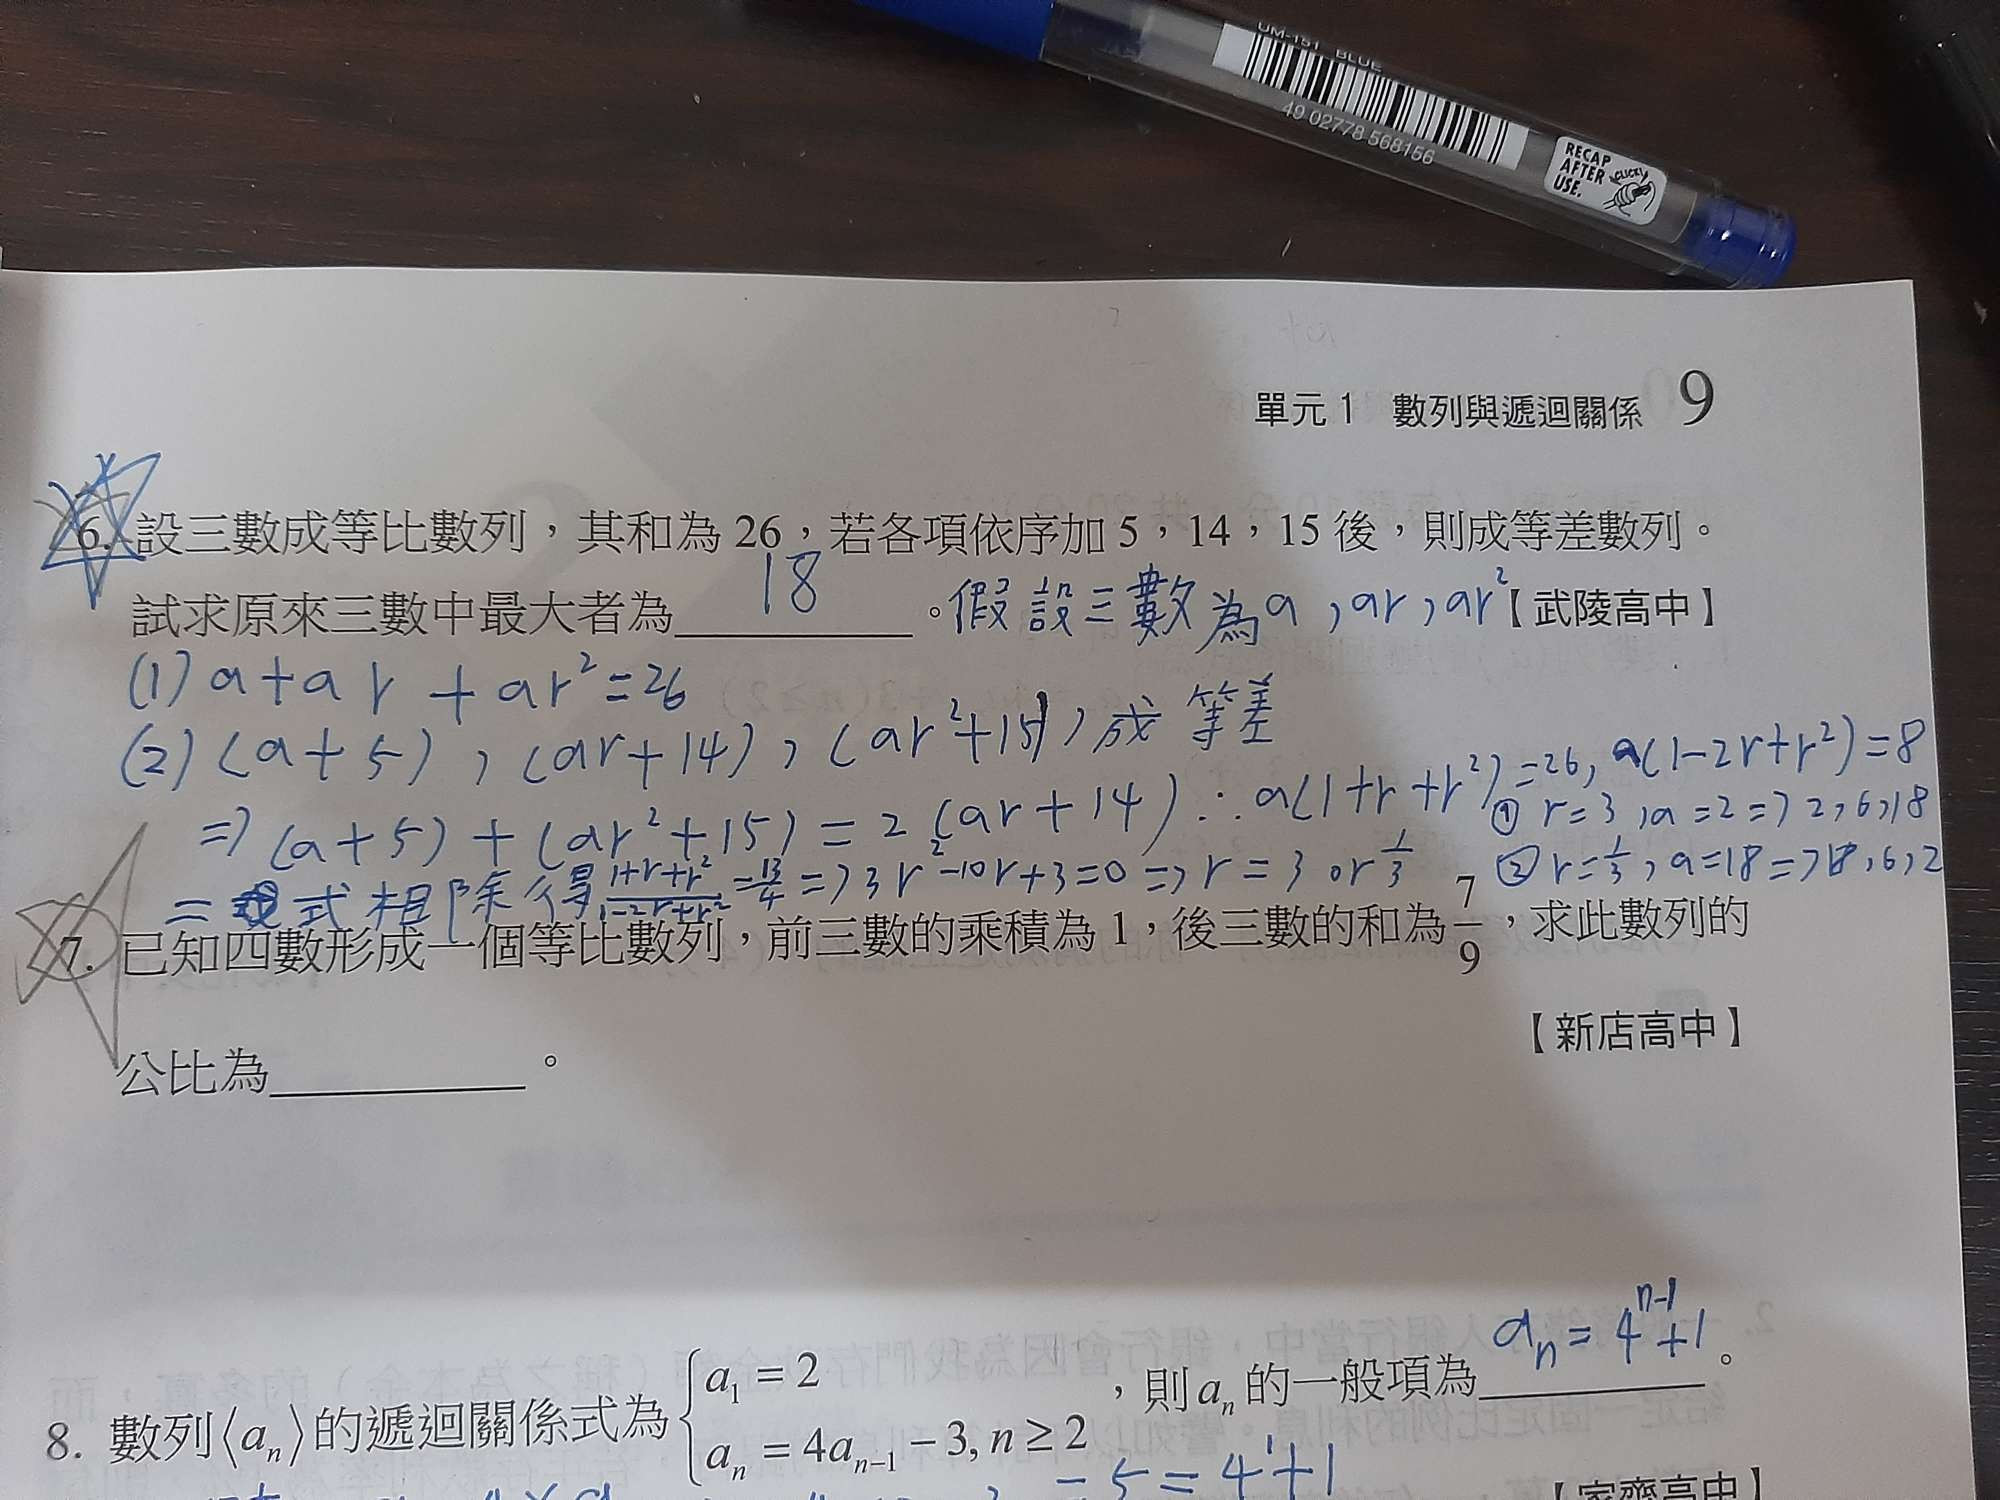 UM-151 BLUE
49 02778 568156
RECAP
AFTER
USE.
CLICK!
單元 1 數列與遞迴關係 9
6. 設三數成等比數列，其和為 26，若各項依序加 5，14，15 後，則成等差數列。
試求原來三數中最大者為 18 。假設三數為 a , ar , ar²【武陵高中】
(1) a + ar + ar² = 26
(2) (a + 5) , (ar + 14) , (ar² + 15) , 成等差
⇒ (a + 5) + (ar² + 15) = 2 (ar + 14) ∴ a(1+r+r²) = 26, a(1-2r+r²) = 8
① r = 3 , a = 2 ⇒ 2, 6, 18
= 式相除得 (1+r+r²)/(1-2r+r²) = 13/4 ⇒ 3r² - 10r + 3 = 0 ⇒ r = 3 or 1/3
② r = 1/3 , a = 18 ⇒ 18, 6, 2
7. 已知四數形成一個等比數列，前三數的乘積為 1，後三數的和為 7/9，求此數列的
【新店高中】
公比為 。
8. 數列⟨aₙ⟩的遞迴關係式為 { a₁ = 2
aₙ = 4aₙ₋₁ − 3, n ≥ 2 ，則 aₙ 的一般項為 aₙ = 4ⁿ⁻¹ + 1 。
= 5 = 4¹ + 1
【家齊高中】